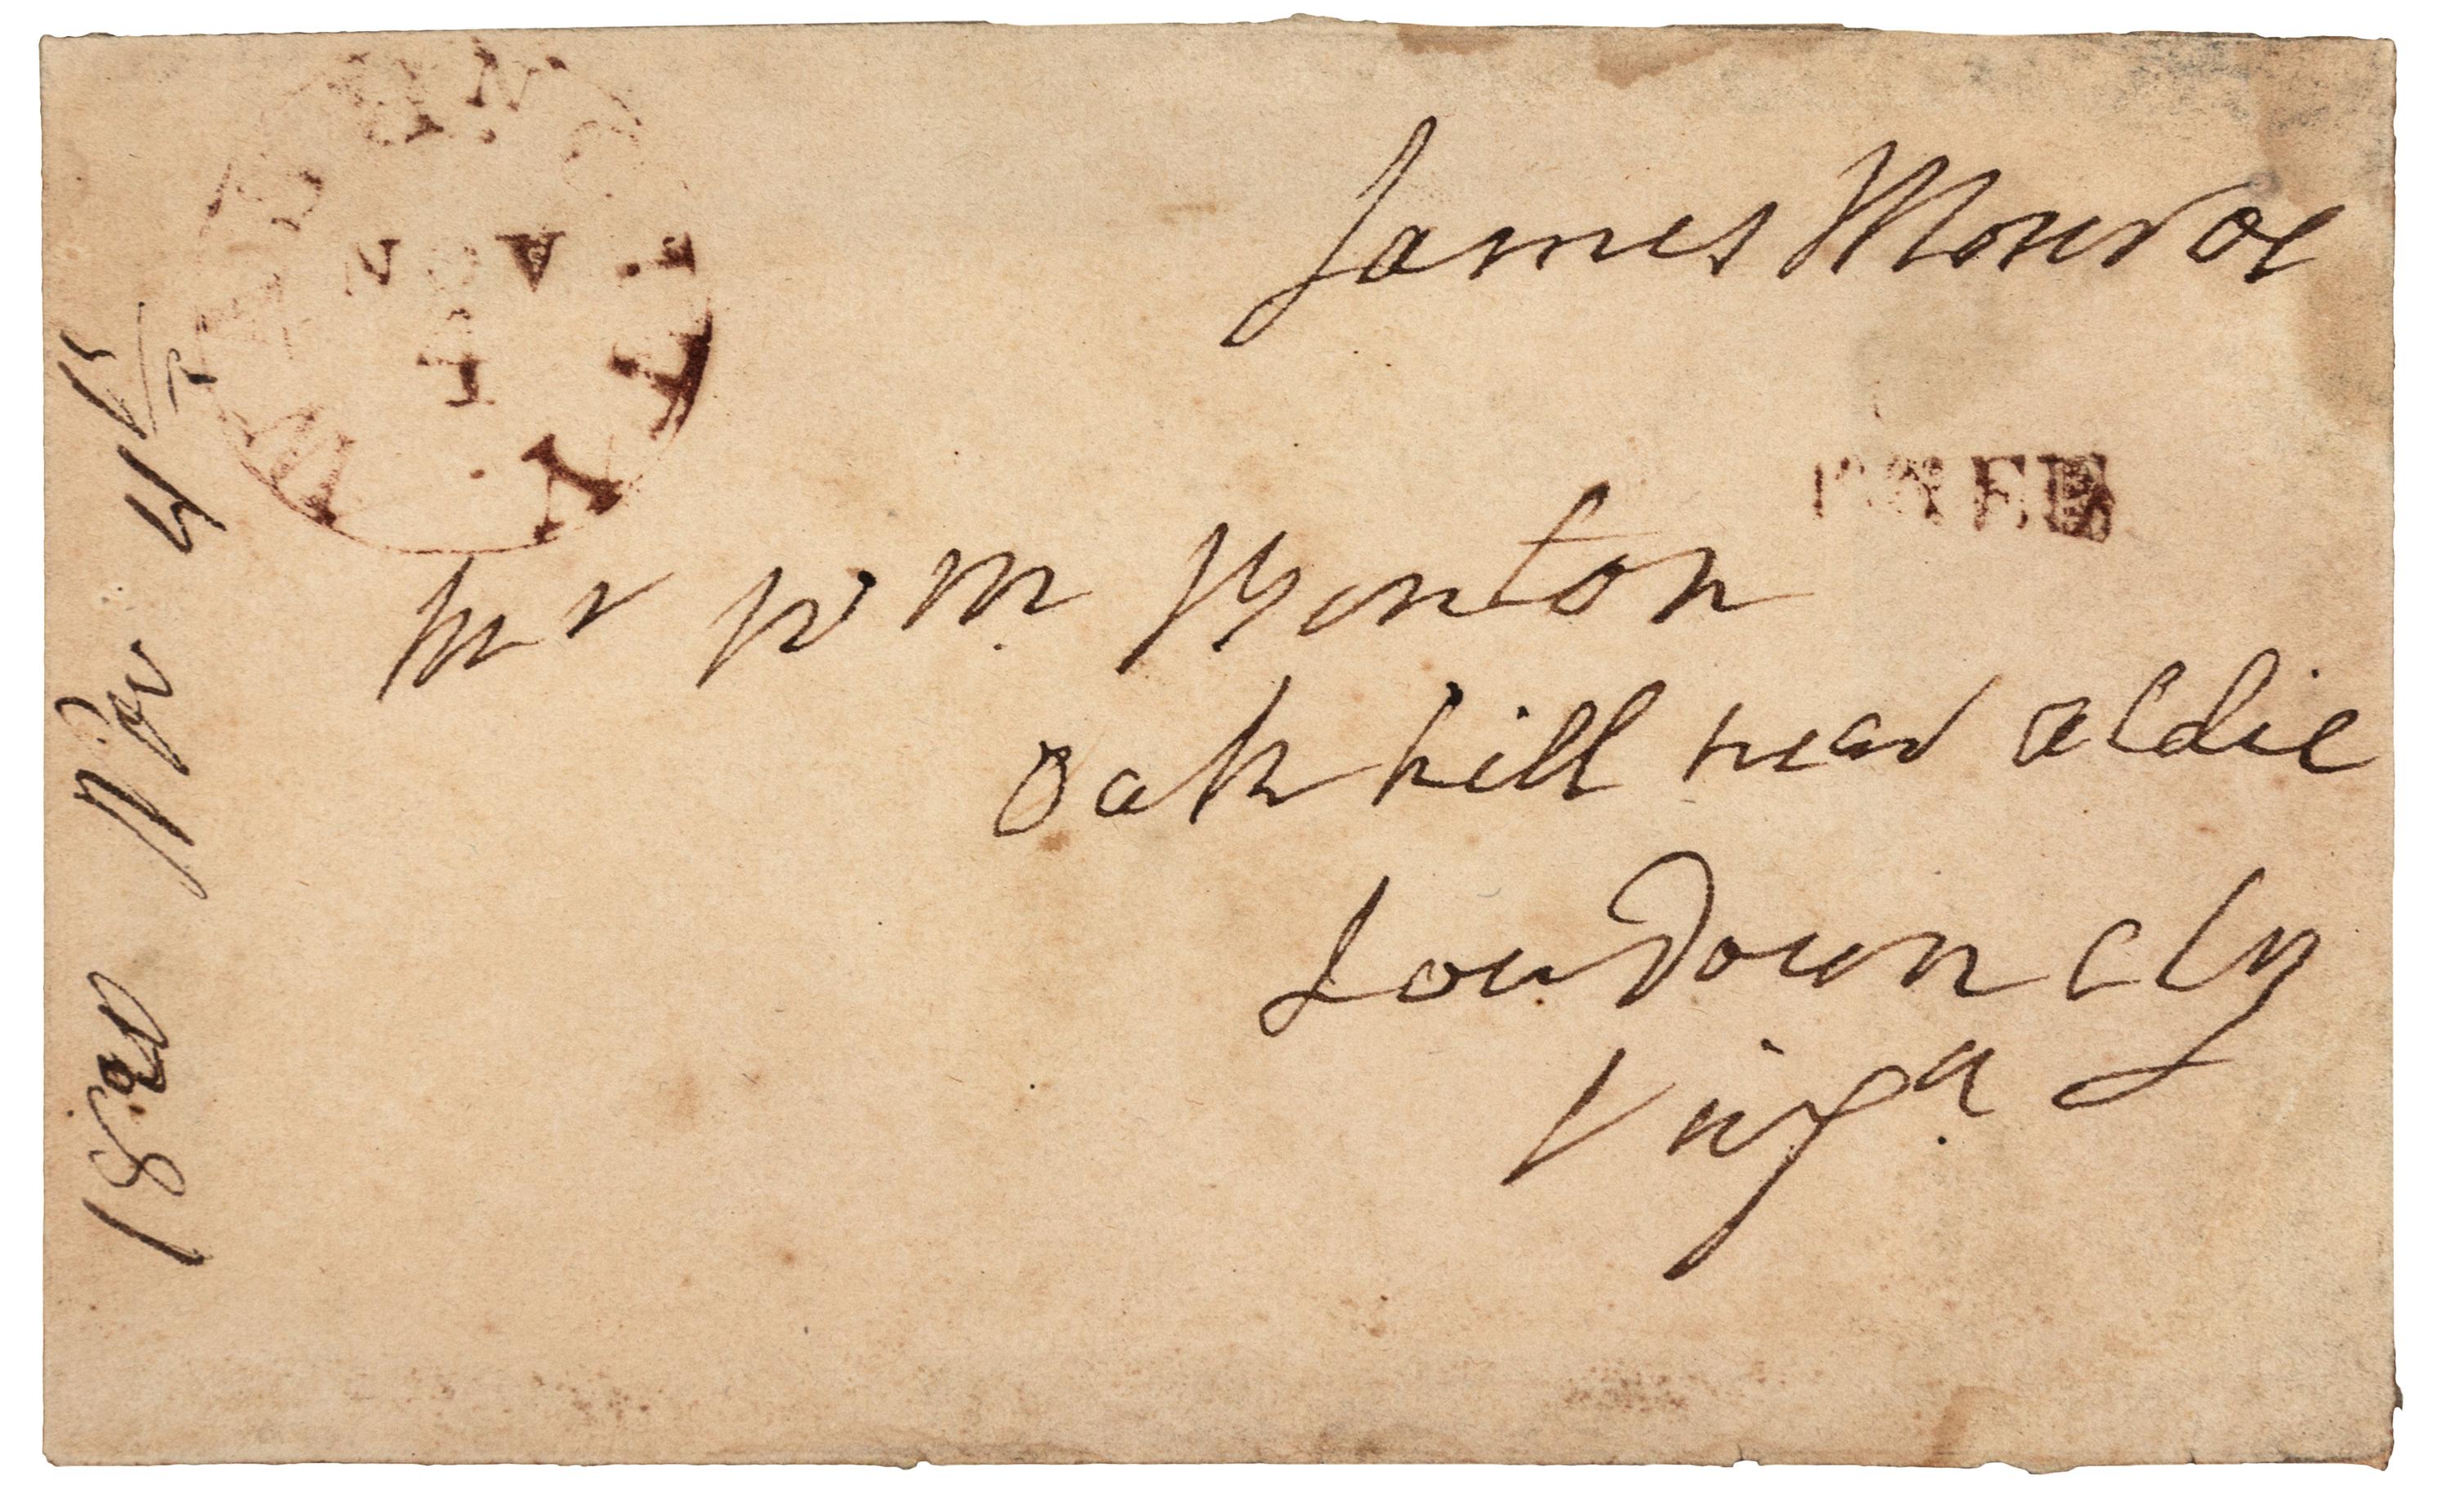 WASHN. CITY
NOV
4
James Monroe
FREE
Mr Wm. Benton
Oak hill near aldie
Loudoun cty
Virga.
1820 Nov 4